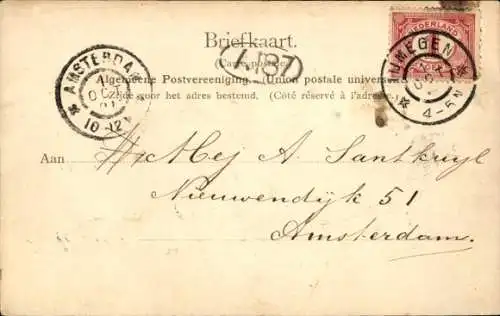 Briefkaart.
(Carte postale)
Algemeene Postvereeniging. (Union postale universelle)
Zijde voor het adres bestemd. (Côté réservé à l'adresse.)
NEDERLAND
NIJMEGEN
4-5N
AMSTERDAM
10-12V
Aan Mej A. Santkuyl
Nieuwendijk 51
Amsterdam.